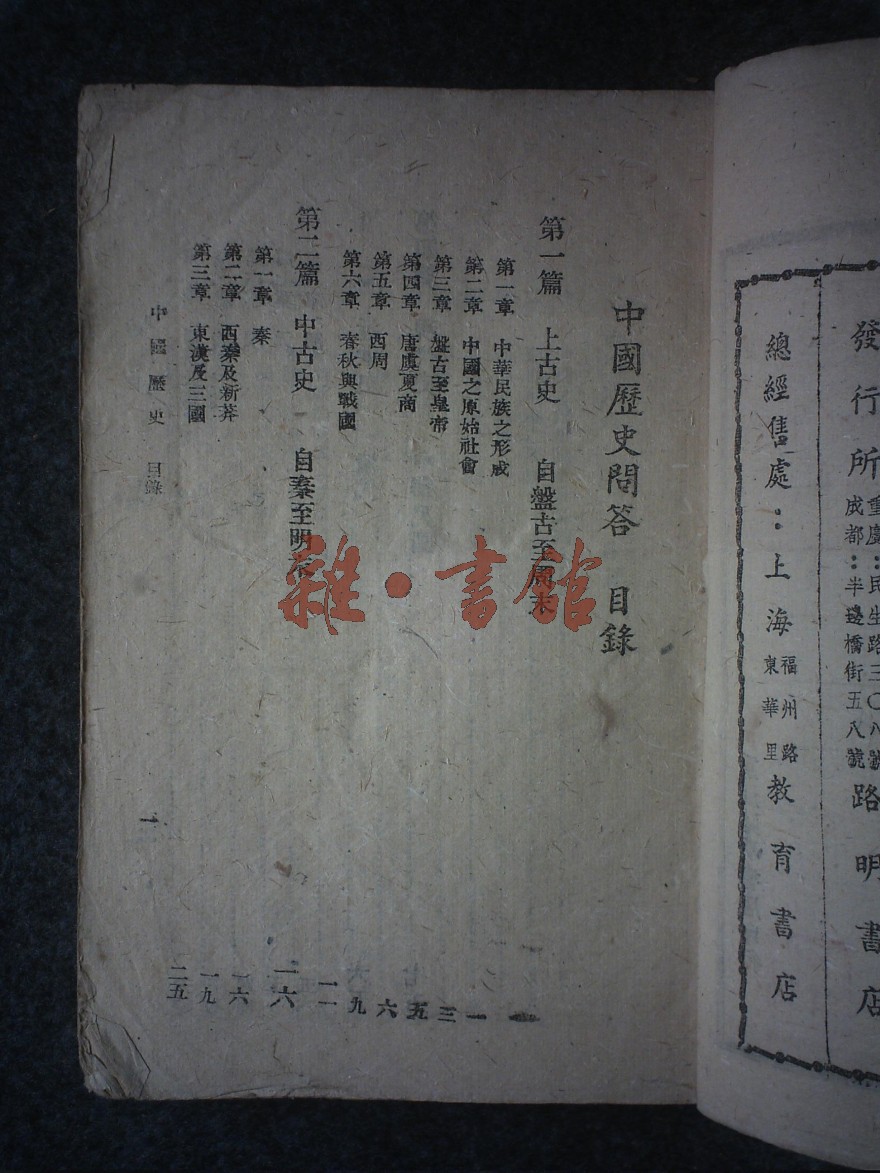 發行所 重慶:民生路三〇八號 成都:半邊橋街五八號 路明書店
總經售處:上海 福州路東華里 教育書店
中國歷史問答 目錄
第一篇 上古史 自盤古至周末
第一章 中華民族之形成 一
第二章 中國之原始社會 三
第三章 盤古至皇帝 五
第四章 唐虞夏商 六
第五章 西周 九
第六章 春秋與戰國 一一
第二篇 中古史 自秦至明末 一六
第一章 秦 一六
第二章 西秦及新莽 一九
第三章 東漢及三國 二五
中國歷史 目錄 一
雜·書館